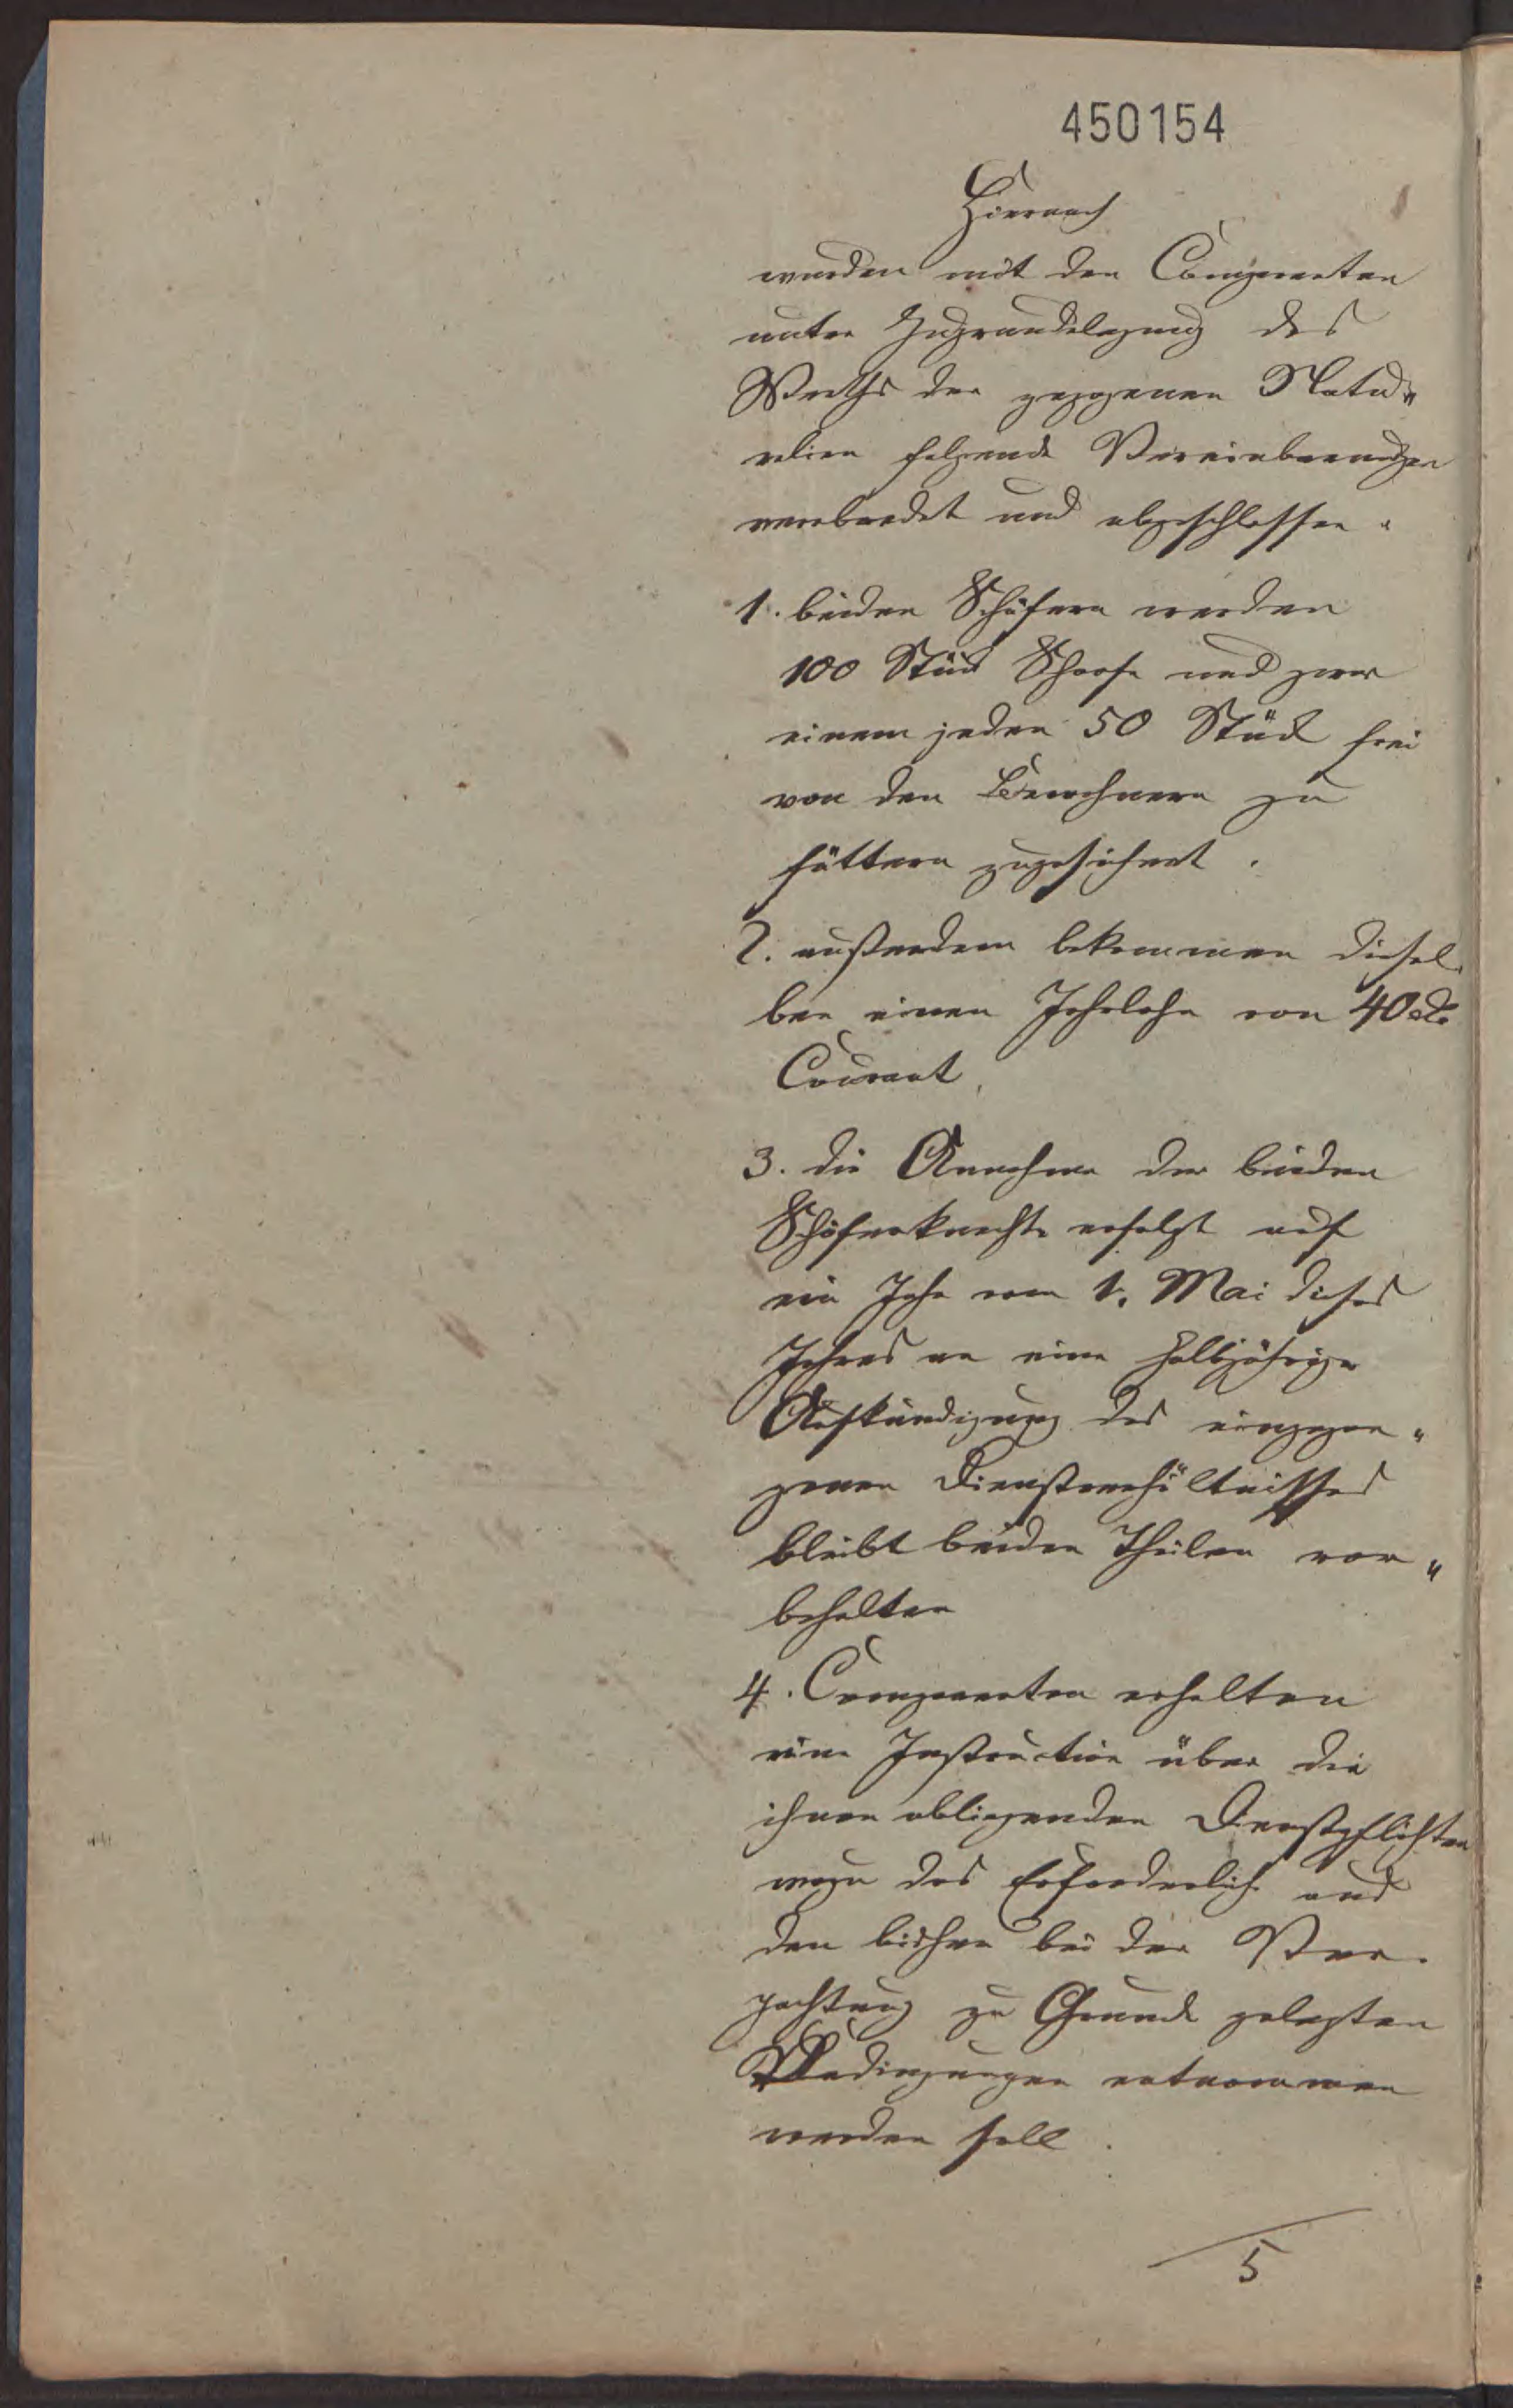 450154
Hiernach
wurden mit den Comparenten
unter Zugrundelegung des
Werths der gezogenen Natu„
ralien folgende Vereinbarungen
verabredet und abgeschlossen.
1. beiden Schäfern werden
100 Stück Schaafe und zwar
einem jeden 50 Stück frei
von den Bewohnern zu
füttern zugesichert.
2. außerdem bekommen diesel„
ben einen Jahrlohn von 40
Courant,
3. die Annahme der beiden
Schäferknechte erfolgt auf
ein Jahr vom 1. Mai dieses
Jahres an eine halbjährige
Aufkündigung des eingegan„
genen Dienstverhältnisses
bleibt beiden Theilen vor„
behalten
4. Comparenten erhalten
eine Instruction über die
ihnen obliegenden Dienstpflichten
wozu das Erforderliche aus
den bisher bei der Ver„
pachtung zu Grunde gelegten
Bedingungen entnommen
werden soll.
5